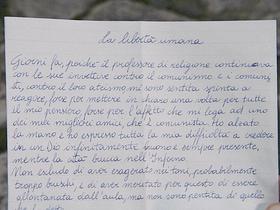 La libertà umana
Giorni fa, poichè il professore di religione continuava
con le sue invettive contro il comunismo e i comuni
sti, contro il loro ateismo, mi sono sentita spinta a
reagire, forse per mettere in chiaro una volta per tutte
il mio pensiero, forse per l'affetto che mi lega ad uno
dei miei migliori amici, che è comunista. Ho alzato
la mano e ho espresso tutta la mia difficoltà a credere
in un Dio infinitamente buono e sempre presente,
mentre la sta brucia nell'Inferno.
Non escludo di aver esagerato nei toni, probabilmente
troppo bruschi, e di aver meritato per questo di essere
allontanata dall'aula, ma non sono pentita di quel